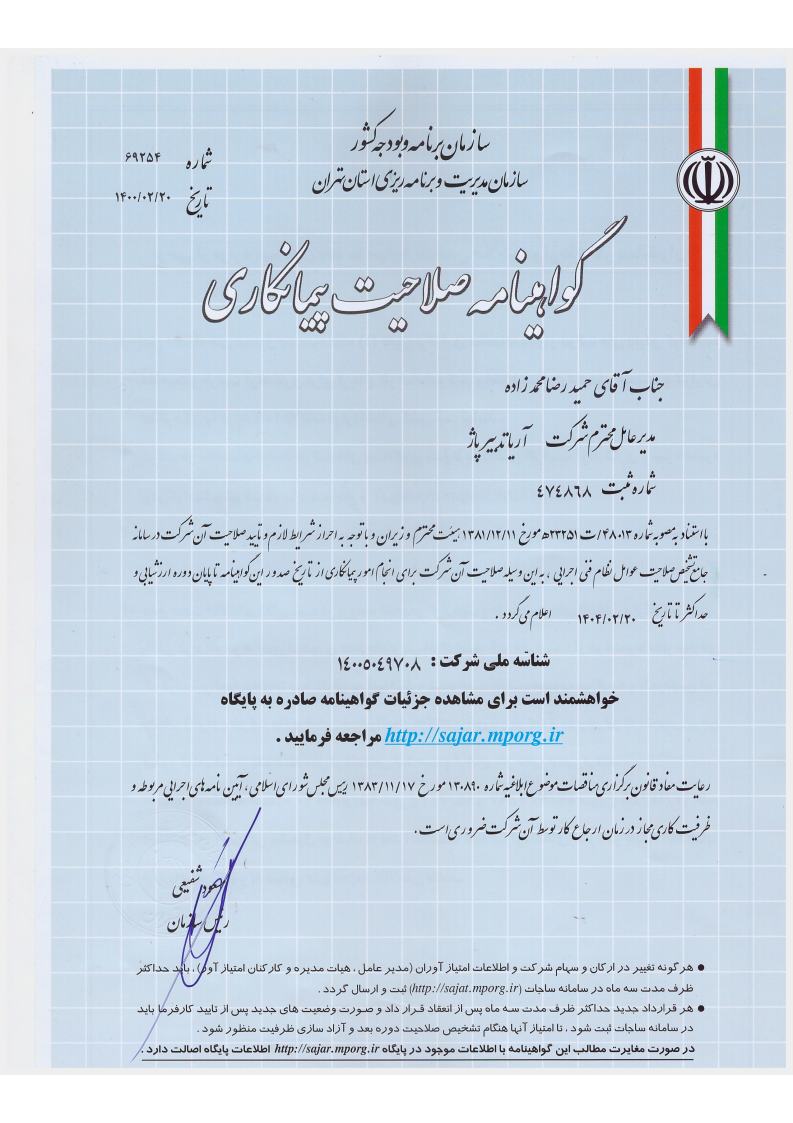 سازمان برنامه و بودجه کشور
سازمان مدیریت و برنامه ریزی استان تهران
شماره ۶۹۲۵۴
تاریخ ۱۴۰۰/۰۲/۲۰
گواهینامه صلاحیت پیمانکاری
جناب آقای حمید رضا محمد زاده
مدیر عامل محترم شرکت آریا تدبیر پاژ
شماره ثبت ٤٧٤٨٦٨
با استناد به مصوبه شماره ۴۸۰۱۳/ت۲۳۲۵۱ه مورخ ۱۳۸۱/۱۲/۱۱ هیئت محترم وزیران و با توجه به احراز شرایط لازم و تایید صلاحیت آن شرکت در سامانه
جامع تشخیص صلاحیت عوامل نظام فنی اجرایی ، به این وسیله صلاحیت آن شرکت برای انجام امور پیمانکاری از تاریخ صدور این گواهینامه تا پایان دوره ارزشیابی و
حداکثر تا تاریخ ۱۴۰۴/۰۲/۲۰ اعلام می گردد .
شناسّه ملی شرکت : ١٤٠٠٥٠٤٩٧٠٨
خواهشمند است برای مشاهده جزئیات گواهینامه صادره به پایگاه
http://sajar.mporg.ir مراجعه فرمایید .
رعایت مفاد قانون برگزاری مناقصات موضوع ابلاغیه شماره ۱۳۰۸۹۰ مورخ ۱۳۸۳/۱۱/۱۷ رییس مجلس شورای اسلامی، آیین نامه های اجرایی مربوطه و
ظرفیت کاری مجاز در زمان ارجاع کار توسط آن شرکت ضروری است .
مسعود شفیعی
رئیس سازمان
● هر گونه تغییر در ارکان و سهام شرکت و اطلاعات امتیاز آوران (مدیر عامل ، هیات مدیره و کارکنان امتیاز آور) ، باید حداکثر
ظرف مدت سه ماه در سامانه ساجات (http://sajat.mporg.ir) ثبت و ارسال گردد .
● هر قرارداد جدید حداکثر ظرف مدت سه ماه پس از انعقاد قرار داد و صورت وضعیت های جدید پس از تایید کارفرما باید
در سامانه ساجات ثبت شود ، تا امتیاز آنها هنگام تشخیص صلاحیت دوره بعد و آزاد سازی ظرفیت منظور شود .
در صورت مغایرت مطالب این گواهینامه با اطلاعات موجود در پایگاه http://sajar.mporg.ir اطلاعات پایگاه اصالت دارد .